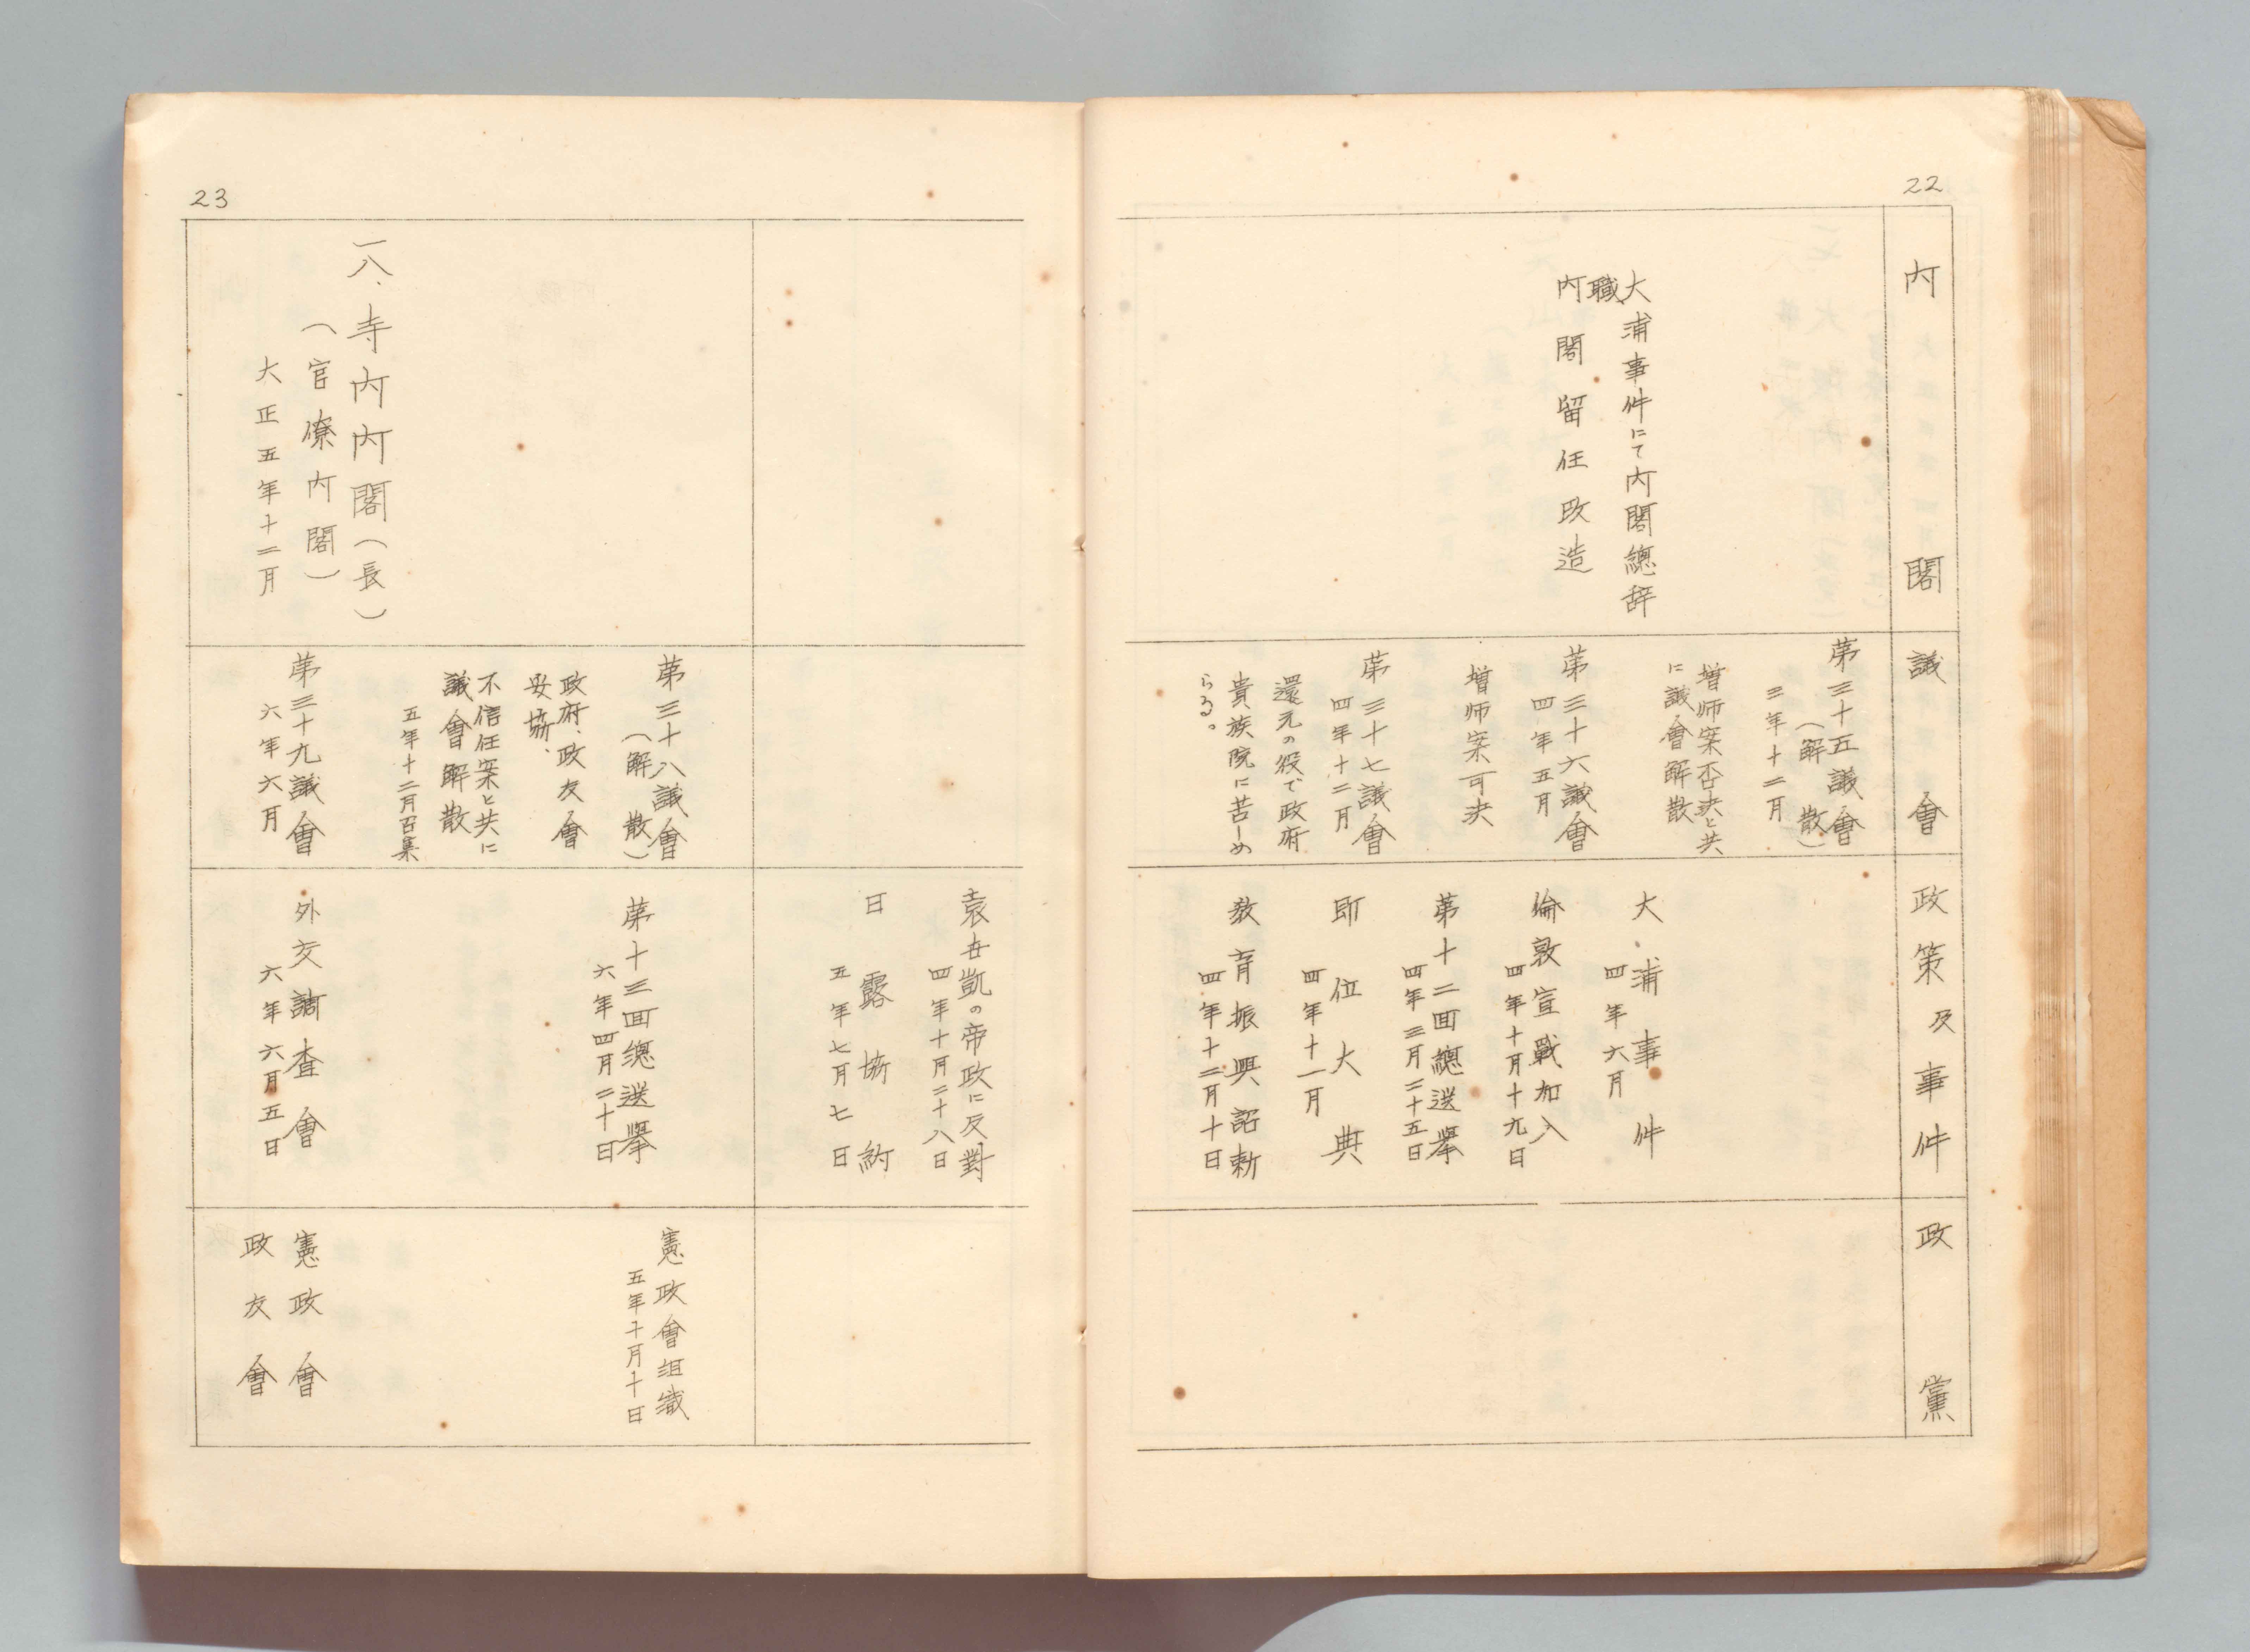 22
内閣
議會
政策及事件
政黨
大浦事件にて内閣總辞
職、
内閣留任改造
第三十五議會
(解散)
三年十二月
増师案否決と共
に議會解散
第三十六議會
四年五月
増师案可決
第三十七議會
四年十二月
還元の役で政府
貴族院に苦しめ
らる。
大浦事件
四年六月
倫敦宣戰加入
四年十月十九日
第十二回總選擧
四年三月二十五日
即位大典
四年十一月
敎育振興詔勅
四年十二月十日
23
袁世凱の帝政に反對
四年十月二十八日
日露協約
五年七月七日
一八、寺内内閣(長)
(官僚内閣)
大正五年十二月
第三十八議會
(解散)
政府、政友會
妥協、
不信任案と共に
議會解散
五年十二月召集
第三十九議會
六年六月
第十三回總選擧
六年四月二十日
外交調査會
六年六月五日
憲政會組織
五年十月十日
憲政會
政友會